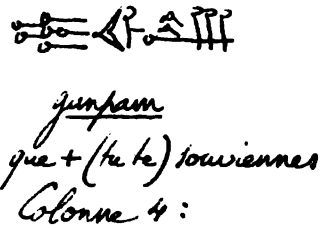 gunpam
que + (tu te) souviennes
Colonne 4 :